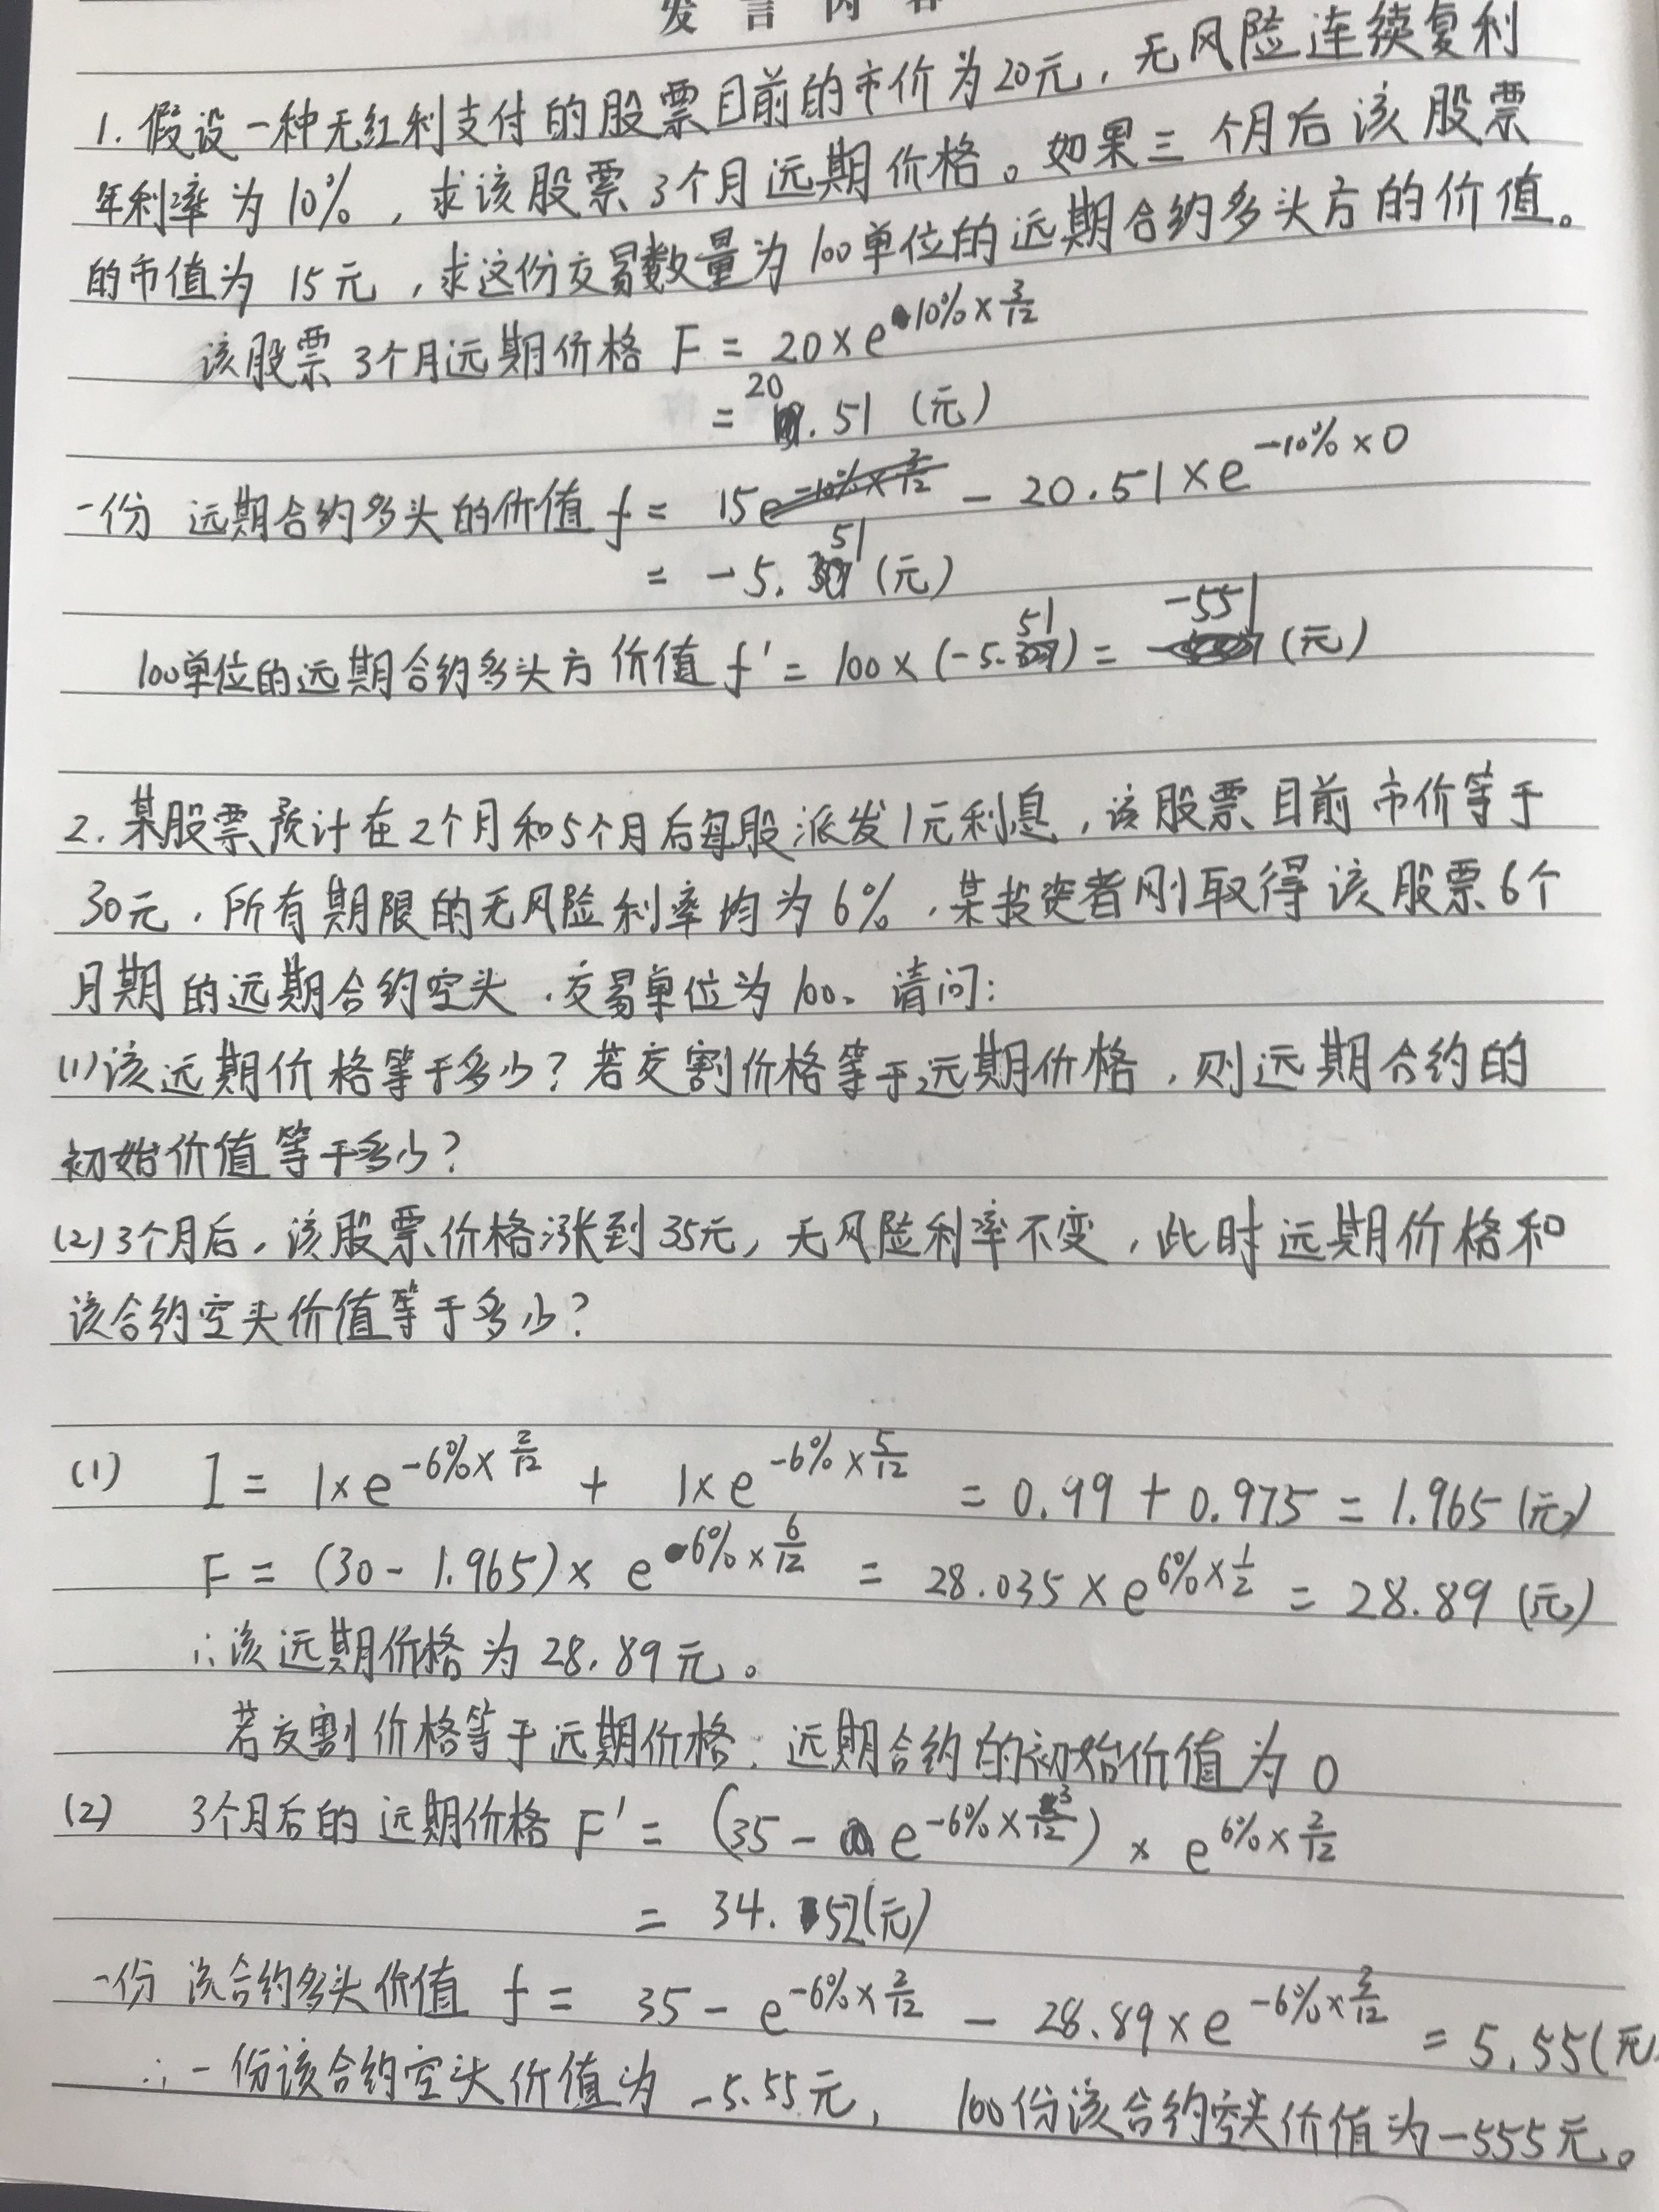 发言内容
1. 假设一种无红利支付的股票目前的市价为20元，无风险连续复利
年利率为10%，求该股票3个月远期价格。如果三个月后该股票
的市值为15元，求这份交易数量为100单位的远期合约多头方的价值。
该股票3个月远期价格 F = 20×e^{10%×3/12}
= 20.51 (元)
一份 远期合约多头的价值 f = 15 - 20.51×e^{-10%×0}
= -5.51 (元)
100单位的远期合约多头方价值 f' = 100×(-5.51) = -551 (元)
2. 某股票预计在2个月和5个月后每股派发1元利息，该股票目前市价等于
30元，所有期限的无风险利率均为6%，某投资者刚取得该股票6个
月期的远期合约空头，交易单位为100、请问：
(1)该远期价格等于多少？若交割价格等于远期价格，则远期合约的
初始价值等于多少？
(2)3个月后，该股票价格涨到35元，无风险利率不变，此时远期价格和
该合约空头价值等于多少？
(1) I = 1×e^{-6%×2/12} + 1×e^{-6%×5/12} = 0.99 + 0.975 = 1.965 (元)
F = (30-1.965)× e^{6%×6/12} = 28.035×e^{6%×1/2} = 28.89 (元)
∴该远期价格为28.89元。
若交割价格等于远期价格，远期合约的初始价值为0
(2) 3个月后的远期价格 F' = (35 - e^{-6%×3/12}) × e^{6%×2/12}
= 34.52(元)
一份该合约多头价值 f = 35 - e^{-6%×2/12} - 28.89×e^{-6%×3/12} = 5.55(元
∴一份该合约空头价值为-5.55元，100份该合约空头价值为-555元。